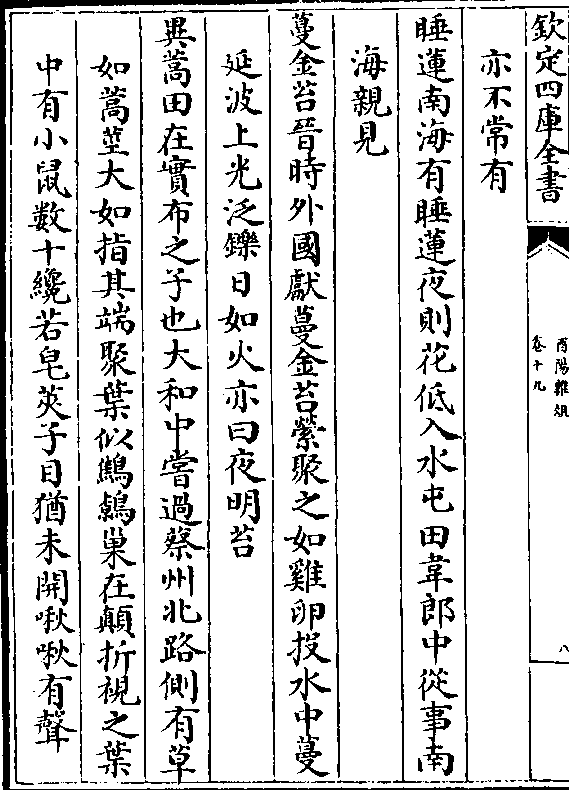 欽定四庫全書
酉陽雜俎
卷十九
八
亦不常有
睡蓮南海有睡蓮夜則花低入水屯田韋郎中從事南
海親見
蔓金苔晉時外國獻蔓金苔縈聚之如雞卵投水中蔓
延波上光泛鑠日如火亦曰夜明苔
異蒿田在實布之子也大和中嘗過蔡州北路側有草
如蒿莖大如指其端聚葉似鷦鷯巢在顛折視之葉
中有小鼠数十纔若皂莢子目猶未開啾啾有聲